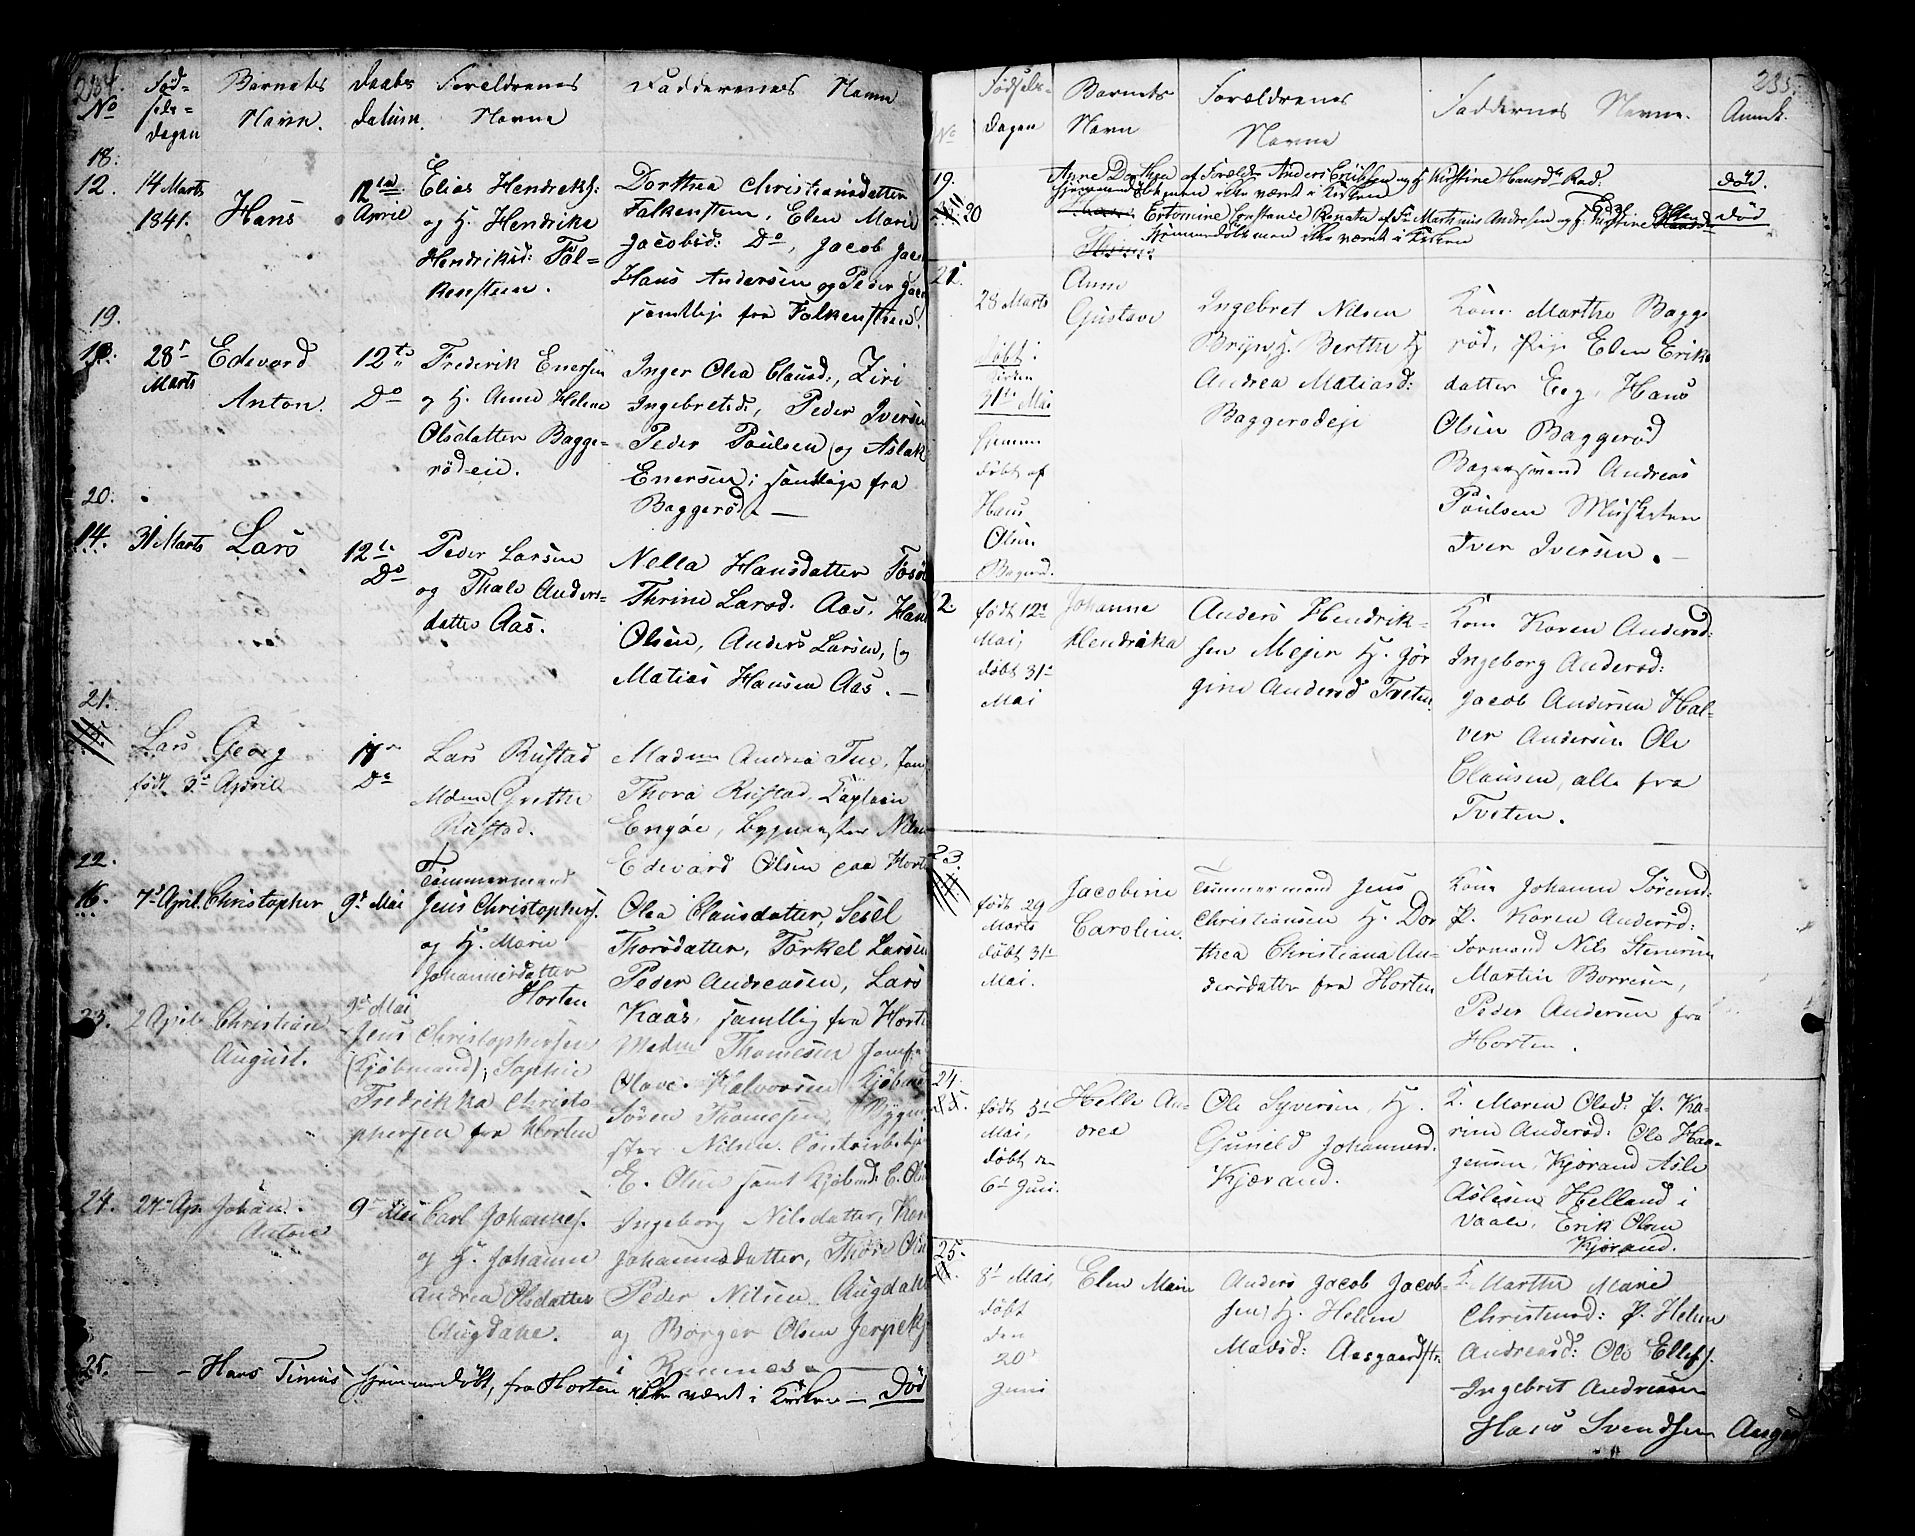 234.
No
Fød-
sels-
dagen
Barnets
Navn.
Daabs
datum.
Forældrenes
Navne
Faddernes Navne
18.
12.
14 Marts
1841.
Hans
12te
April
Elias Hendriks:
og H. Hendrika
Hendriksd: Fal-
kensteen.
Dorthea Christiansdatter
Falkensteen, Elen Marie
Jacobsd: Do, Jacob
Hans Andersen og Peder
samtlige fra Falkensteen.
19.
13.
28de
Marts
Edevard
Anton.
12te
Do
Frederik Enersen
og H. Anne Helene
Olsdatter Bagge-
rødeie.
Inger Olea Clausd:, Ziri
Ingebretsd:, Peder Iversen
Peder Poulsen og Aslak
Enersen; samtlige fra
Baggerød. —
20.
14.
31 Marts
Lars
12te
Do
Peder Larsen
og Thale Anders-
datter Aas.
Nella Hansdatter
Thrine Larsd. Aas,
Olsen, Anders Larsen, og
Matias Hansen Aas. —
21.
15.
Lars Georg
født 3de April
Do
Lars Rustad
Mdme Grethe
Rustad.
Madme Andrea Tue,
Thora Rustad, Captain
Engøe,
Edevard Olsen paa
22.
16.
7de April
Christopher
9de Mai
Tømmermand
Jens Christophers.
og H. Marie
Johannesdatter
Horten
Olea Clausdatter, Sesel
Thorsdatter, Torkel Larsen
Peder Andreasen, Lars
Kaas, samtlig fra
23.
2 April
Christian
August.
9de Mai
Jens Christophersen
(Kjøbmand); Sophie
Fredrikka Christo
phersen fra Horten
Madm Thomesen
Olave Halvorsen
Søren Thomesen,
ster Nilsen.
E. Olsen samt Kjøbmd:
24.
24de Apr.
Johan
Anton
9de Mai
Carl Johannes.
og H. Johanne
Andrea Olsdatter
Augdahe.
Ingeborg Nilsdatter,
Johannesdatter, Thore
Peder Nilsen Augdahe
og Borger Olsen
i Ramnes. —
25.
— - Hans Tinius hjemmedøbt, fra Horten ikke været i Kirken — Død
235.
No
Fødsels-
dagen
Barnets
Navn
Forældrenes
Navne
Faddernes Navne.
Anmk.
19.
Anne Dorthea af Foreld: Anders Erichsen og H. Kirstine Hansdr Rød:
hjemmedøbt men ikke været i Kirken
død.
20
Ertomine Constance Renata af Fr Martinus Andresen og H. Kirstine
hjemmedøbt men ikke været i Kirken
død
21.
28 Marts
døbt i
Kirken
31te Mai
hjemme
døbt af
Hans
Olsen
Bagerød.
Anne
Gustave
Ingebret Nilsen
Bryn, H. Berthe H
Andrea Matiasd:
Baggerødeje
Kone Marthe Bagge
rød, Pige Elen Eriks
datter Eeg, Hans
Olsen Baggerød
Bagersvend Andreas
Poulsen Musketeer
Iver Iversen. —
22
født 12te
Mai,
døbt 31te
Mai
Johanne
Hendrikka
Anders Hendrik-
sen Mejer H. Jør
gine Andersd Tveten.
Kone Karen Andersd:
Ingeborg Andersd:
Jacob Andersen Hal-
ver Andersen Ole
Clausen, alle fra
Tveten.
23.
født 29
Marts
døbt 31te
Mai.
Jacobine
Caroline.
Tømmermand Jens
Christiansen H. Dor
thea Christiana An-
dersdatter fra Horten
Kone Johanne Sørensd:
P. Karen Andersd:
Formand Nils Stenersen
Martin Borresen,
Peder Andersen fra
Horten.
24.
født 5te
Mai,
døbt den
6te Juni.
Helle An-
drea
Ole Syversen, H.
Guneld Johannesd:
Kjærand.
K. Maren Olsd: P. Ka-
rine Andersd: Ole Haa-
gensen, Kjærand Asle
Aslesen Helland i
Vaale, Erik Olsen
Kjærand.
25.
8de Mai,
døbt
den
20de
Juni
Elen Marie
Anders Jacob Jacob-
sen H. Helene
Madsd: Aasgaardstr.
K. Marthe Marie
Christensd: P. Helene
Andreasd: Ole Ellefs.
Ingebret Andreasen
Hans Svendsen